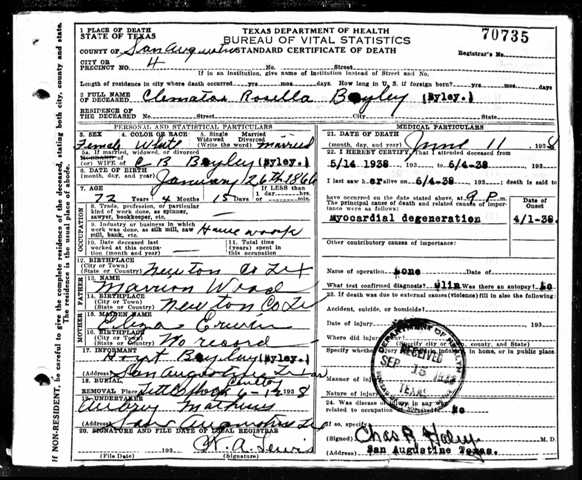 1 PLACE OF DEATH
STATE OF TEXAS
TEXAS DEPARTMENT OF HEALTH
BUREAU OF VITAL STATISTICS
STANDARD CERTIFICATE OF DEATH
70735
COUNTY OF San Augustine
CITY OR
PRECINCT NO. 4
No. Street
Registrar's No.
If in an institution, give name of institution instead of Street and No.
Length of residence in city where death occurred yrs. mos. days. How long in U. S. if foreign born? yrs. mos. days
2 FULL NAME
OF DECEASED Rosella Bayley (Byley.)
RESIDENCE OF
THE DECEASED No. Street City State
PERSONAL AND STATISTICAL PARTICULARS
3. SEX 4. COLOR OR RACE 5. Single Married
Widowed Divorced
(Write the word)
Female White married
5a. If married, widowed, or divorced
(or) WIFE OF C B Bayley (Byley.)
6. DATE OF BIRTH
(month, day, and year) January 26th 1866
7. AGE
72 Years 4 Months 15 Days
If LESS than
1 day
8. Trade, profession, or particular
kind of work done, as spinner,
sawyer, bookkeeper, etc.
9. Industry or business in
which work was done, as silk mill, saw
mill, bank, etc. House work
10. Date deceased last
worked at this occupation
(month and year)
11. Total time
(years) spent in
this occupation
12. BIRTHPLACE
(City or Town)
(State or Country) Newton Co Tex
FATHER
13. NAME
Marrion
14. BIRTHPLACE
(City or Town)
(State or Country) Newton Co
MOTHER
15. MAIDEN NAME
Eliza Erwin
16. BIRTHPLACE
(City or Town)
(State or Country) No record
17. INFORMANT
Hoyt Bayley (Byley.)
(Address) San Augustine Texas
18. BURIAL
REMOVAL Place Date 6-12 1938
19. UNDERTAKER
Aubry Mathews
(Address) San Augustine Tex
20. SIGNATURE AND FILE DATE OF LOCAL REGISTRAR
193
A. Lewis
(File Date) (Signature)
MEDICAL PARTICULARS
21. DATE OF DEATH
(month, day, and year) June 11 1938
22. I HEREBY CERTIFY, That I attended deceased from
5/14 1938 to 6/4-38 193
I last saw h er alive on 6/4-38 193 death is said to
have occurred on the date stated above, at 9 P. m.
The principal cause of death and related causes of importance
were as follows:
Date of
Onset
Myocardial degeneration 4/1-38
Other contributory causes of importance:
Name of operation none Date of
What test confirmed diagnosis? Was there an autopsy? no
23. If death was due to external causes (violence) fill in also the following:
Accident, suicide, or homicide?
Date of injury 193
Where did injury
(Specify city or town, county, and State)
Specify whether injury in industry, in home, or in public
Manner of injury
Nature of injury
24. Was disease or injury in any way
related to occupation of deceased? no
If so, specify
(Signed) Chas R Haley M. D.
San Augustine Texas.
DEPARTMENT OF HEALTH
RECEIVED
SEP 15 1938
TEXAS
OCCUPATION
IF NON-RESIDENT, be careful to give the complete residence of the deceased, stating both city, county and state.
The residence is the usual place of abode.